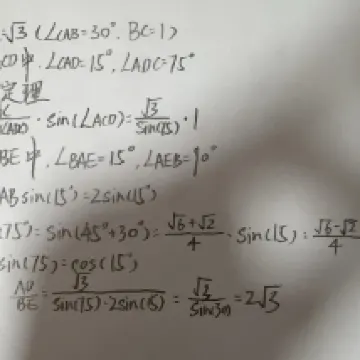 =√3 (∠CAB=30°, BC=1)
CD中, ∠CAD=15°, ∠ADC=75°
定理
· sin(∠ACD) = √3/sin(75) · 1
BE中, ∠BAE=15°, ∠AEB=90°
AB sin(15°)=2sin(15°)
75°)= sin(45°+30°)= (√6+√2)/4 · sin(15)= (√6-√2)/4
sin(75)=cos(15°)
AD/BE = √3/(sin(75)·2sin(15)) = √3/sin(30) = 2√3